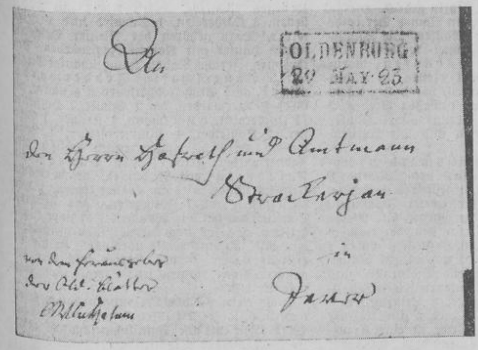 An
OLDENBURG
29 MAY 23
den Herrn Hofrath und Amtmann
Strackerjan
in
Jever
von dem Herausgeber
der Old. Blätter